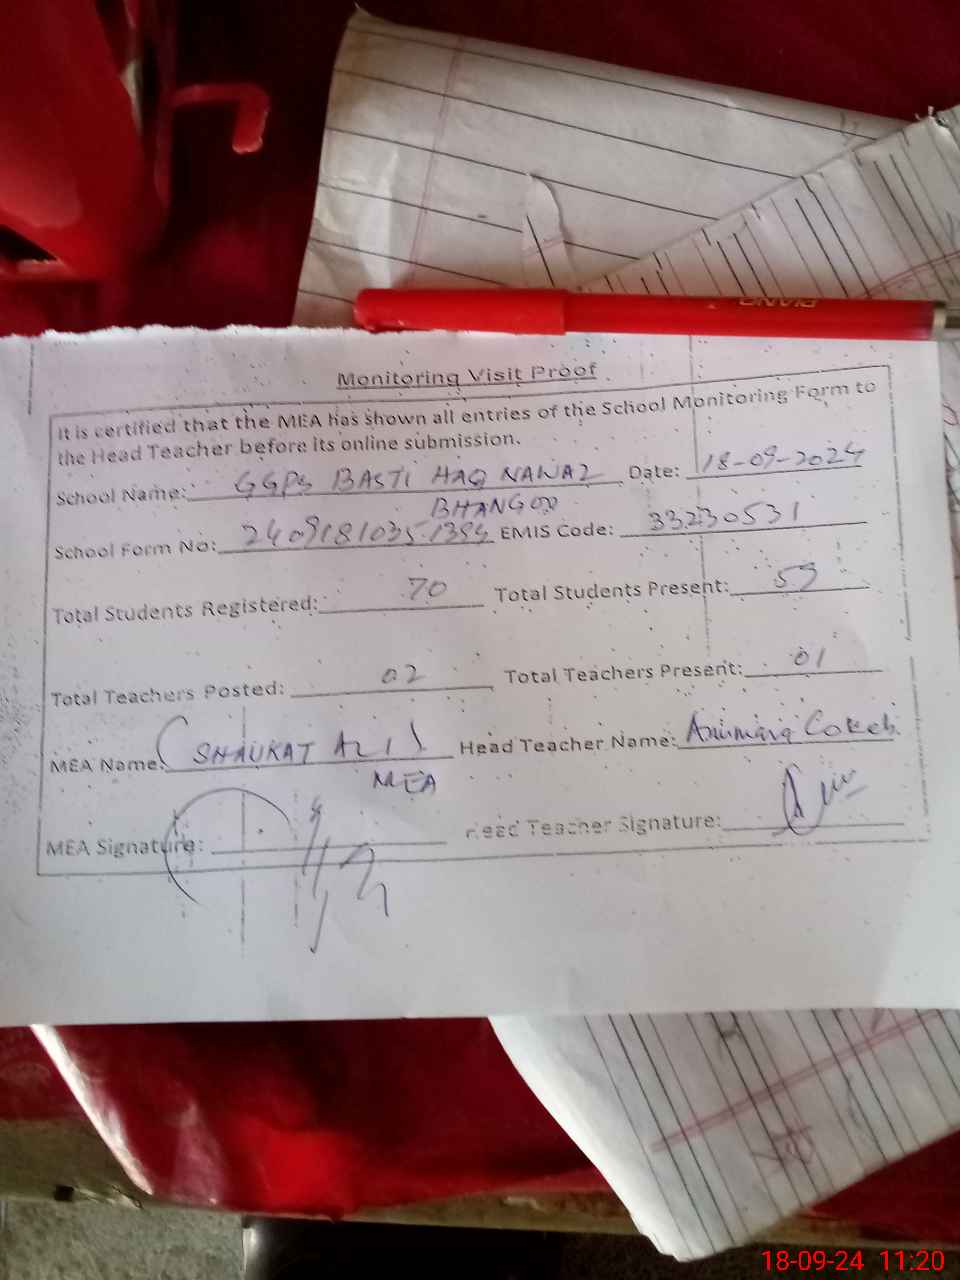 PIANO
Monitoring Visit Proof
It is certified that the MEA has shown all entries of the School Monitoring Form to
the Head Teacher before its online submission.
School Name: GGPS BASTI HAQ NAWAZ Date: 18-09-2024
BHANGOO
School Form No: 24091810351394 EMIS Code: 33230531
Total Students Registered: 70 Total Students Present: 59
Total Teachers Posted: 02 Total Teachers Present: 01
MEA Name: (SHAUKAT ALI) Head Teacher Name:
MEA
MEA Signature: Head Teacher Signature:
18-09-24 11:20